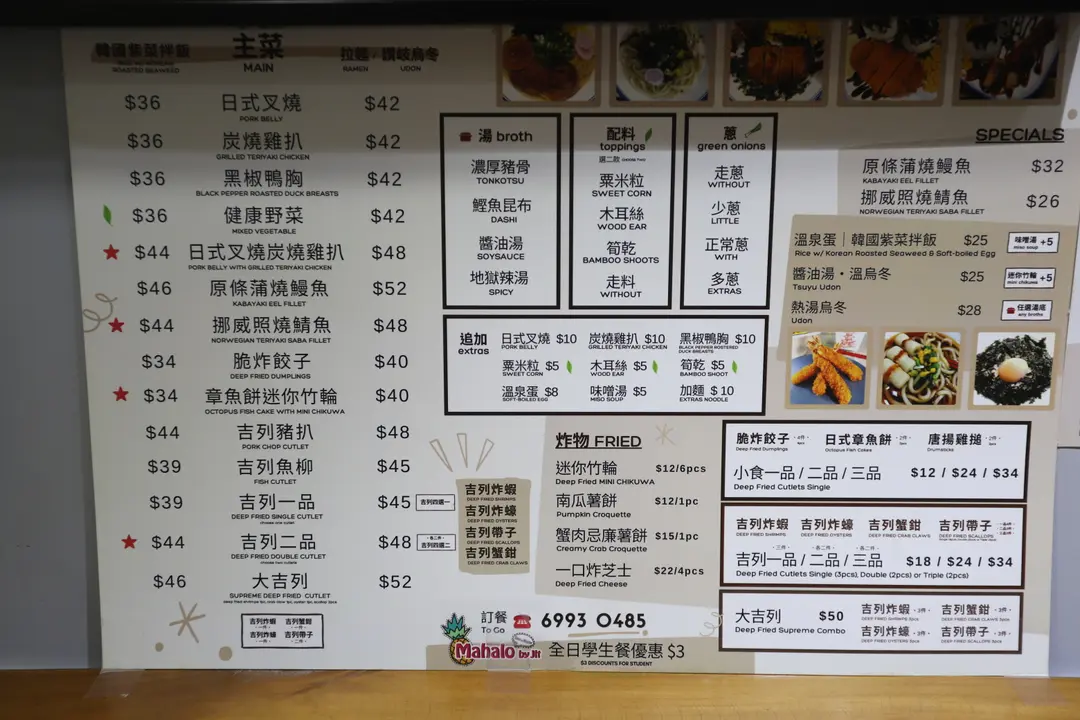 韓國紫菜拌飯
ROASTED SEAWEED
主菜
MAIN
拉麵·讚岐烏冬
RAMEN UDON
$36 日式叉燒 $42
PORK BELLY
$36 炭燒雞扒 $42
GRILLED TERIYAKI CHICKEN
$36 黑椒鴨胸 $42
BLACK PEPPER ROASTED DUCK BREASTS
$36 健康野菜 $42
MIXED VEGETABLE
$44 日式叉燒炭燒雞扒 $48
PORK BELLY WITH GRILLED TERIYAKI CHICKEN
$46 原條蒲燒鰻魚 $52
KABAYAKI EEL FILLET
$44 挪威照燒鯖魚 $48
NORWEGIAN TERIYAKI SABA FILLET
$34 脆炸餃子 $40
DEEP FRIED DUMPLINGS
$34 章魚餅迷你竹輪 $40
OCTOPUS FISH CAKE WITH MINI CHIKUWA
$44 吉列豬扒 $48
PORK CHOP CUTLET
$39 吉列魚柳 $45
FISH CUTLET
$39 吉列一品 $45 吉列四選一
DEEP FRIED SINGLE CUTLET
choose one cutlet
$44 吉列二品 $48 吉列四選二
DEEP FRIED DOUBLE CUTLET
choose two cutlets
$46 大吉列 $52
SUPREME DEEP FRIED CUTLET
吉列炸蝦 吉列蟹鉗
吉列炸蠔 吉列帶子
吉列炸蝦
DEEP FRIED SHRIMPS
吉列炸蠔
DEEP FRIED OYSTERS
吉列帶子
DEEP FRIED SCALLOPS
吉列蟹鉗
DEEP FRIED CRAB CLAWS
湯 broth
濃厚豬骨
TONKOTSU
鰹魚昆布
DASHI
醬油湯
SOYSAUCE
地獄辣湯
SPICY
配料
toppings
選二款 CHOOSE TWO
粟米粒
SWEET CORN
木耳絲
WOOD EAR
筍乾
BAMBOO SHOOTS
走料
WITHOUT
蔥
green onions
走蔥
WITHOUT
少蔥
LITTLE
正常蔥
WITH
多蔥
EXTRAS
追加
extras
日式叉燒 $10 炭燒雞扒 $10 黑椒鴨胸 $10
PORK BELLY GRILLED TERIYAKI CHICKEN BLACK PEPPER ROSTERED DUCK BREASTS
粟米粒 $5 木耳絲 $5 筍乾 $5
SWEET CORN WOOD EAR BAMBOO SHOOT
溫泉蛋 $8 味噌湯 $5 加麵 $10
SOFT-BOILED EGG MISO SOUP EXTRAS NOODLE
SPECIALS
原條蒲燒鰻魚 $32
KABAYAKI EEL FILLET
挪威照燒鯖魚 $26
NORWEGIAN TERIYAKI SABA FILLET
溫泉蛋｜韓國紫菜拌飯 $25 味噌湯 +5
Rice w/ Korean Roasted Seaweed & Soft-boiled Egg miso soup
醬油湯·溫烏冬 $25 迷你竹輪 +5
Tsuyu Udon mini chikuwa
熱湯烏冬 $28 任選湯底
Udon any broths
炸物 FRIED
迷你竹輪 $12/6pcs
Deep Fried MINI CHIKUWA
南瓜薯餅 $12/1pc
Pumpkin Croquette
蟹肉忌廉薯餅 $15/1pc
Creamy Crab Croquette
一口炸芝士 $22/4pcs
Deep Fried Cheese
脆炸餃子 ·4件· 日式章魚餅 ·2件· 唐揚雞搥 ·2件·
Deep Fried Dumplings Octopus Fish Cakes Drumsticks
小食一品 / 二品 / 三品 $12 / $24 / $34
Deep Fried Cutlets Single
吉列炸蝦 吉列炸蠔 吉列蟹鉗 吉列帶子
DEEP FRIED SHRIMPS DEEP FRIED OYSTERS DEEP FRIED CRAB CLAWS DEEP FRIED SCALLOPS
·三件· ·各二件· ·各二件·
吉列一品 / 二品 / 三品 $18 / $24 / $34
Deep Fried Cutlets Single (3pcs), Double (2pcs) or Triple (2pcs)
大吉列 $50
Deep Fried Supreme Combo
吉列炸蝦 ·3件· 吉列蟹鉗 ·3件·
DEEP FRIED SHRIMPS 3pcs DEEP FRIED CRAB CLAWS 3pcs
吉列炸蠔 ·3件· 吉列帶子 ·3件·
DEEP FRIED OYSTERS 3pcs DEEP FRIED SCALLOPS 3pcs
訂餐 6993 0485
To Go
Mahalo by Jit
全日學生餐優惠 $3
$3 DISCOUNTS FOR STUDENT